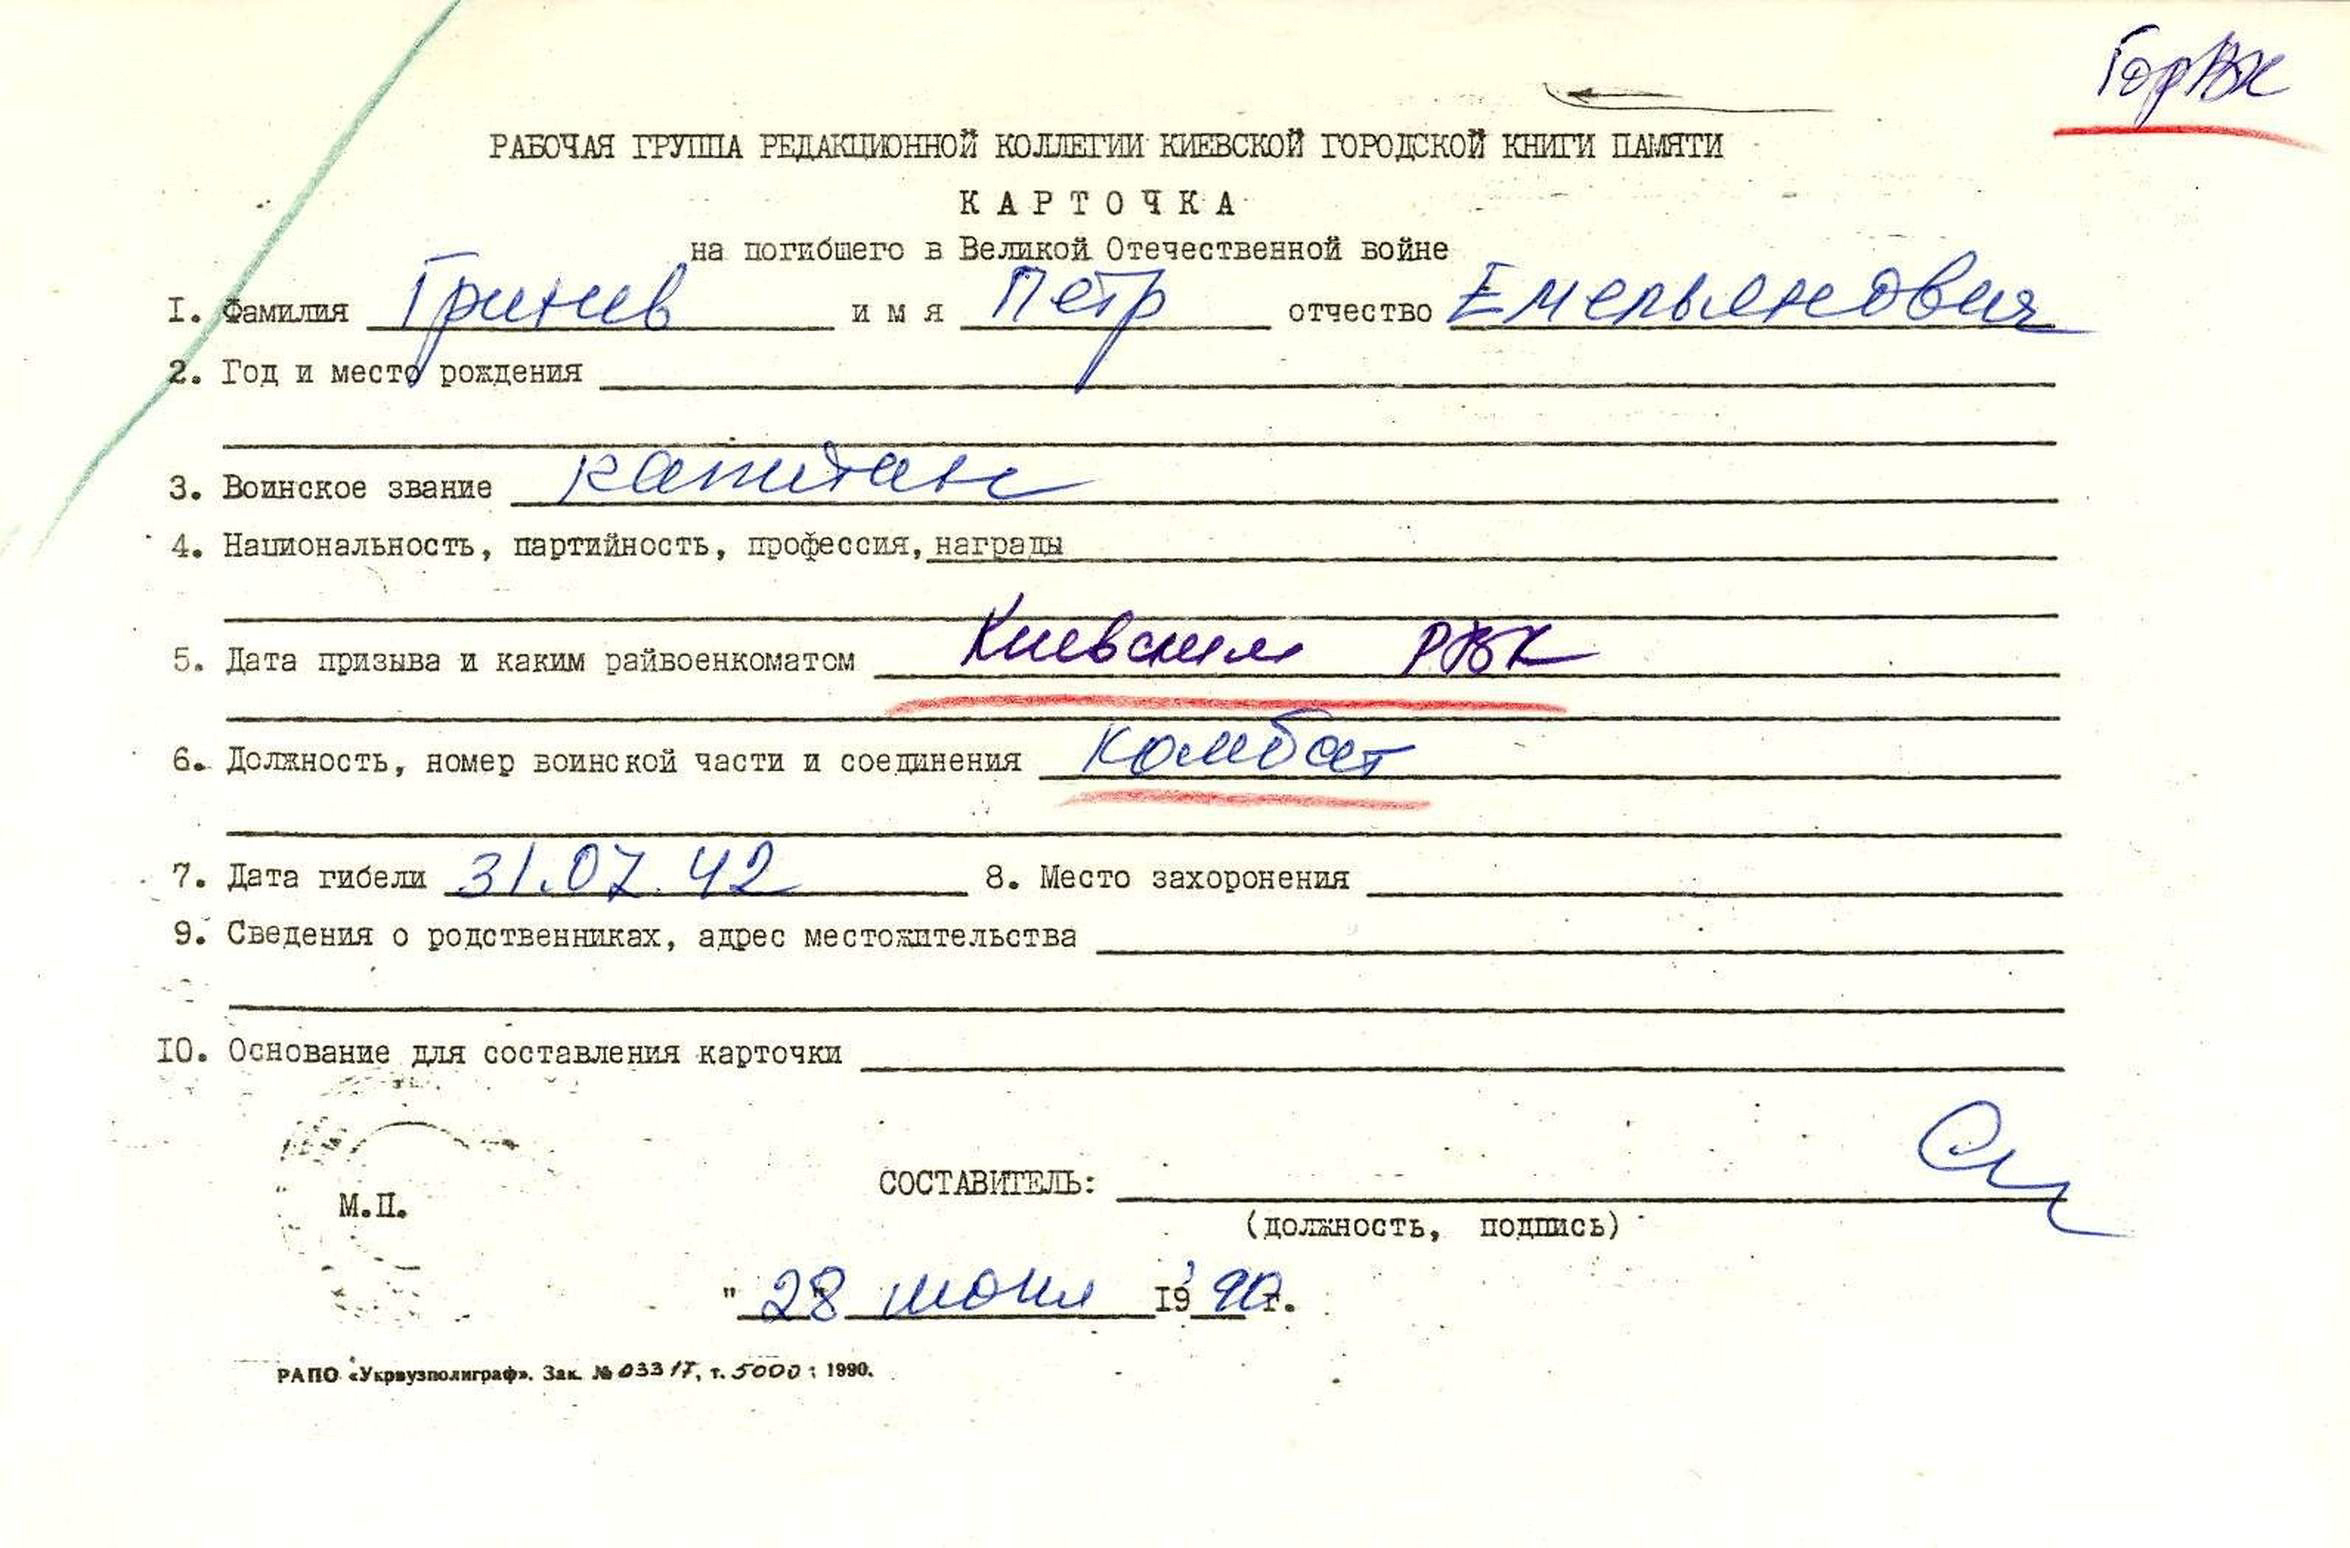 ГорВК
РАБОЧАЯ ГРУППА РЕДАКЦИОННОЙ КОЛЛЕГИИ КИЕВСКОЙ ГОРОДСКОЙ КНИГИ ПАМЯТИ
КАРТОЧКА
на погибшего в Великой Отечественной войне
I. Фамилия Гринев имя Петр отчество Емельянович
2. Год и место рождения
3. Воинское звание капитан
4. Национальность, партийность, профессия, награды
5. Дата призыва и каким райвоенкоматом Киевским РВК
6. Должность, номер воинской части и соединения комбат
7. Дата гибели 31.07.42 8. Место захоронения
9. Сведения о родственниках, адрес местожительства
IO. Основание для составления карточки
СОСТАВИТЕЛЬ:
М.П.
(должность, подпись)
"28" июня 1990г.
РАПО «Укрвузполиграф». Зак. № 03317, т. 5000; 1990.